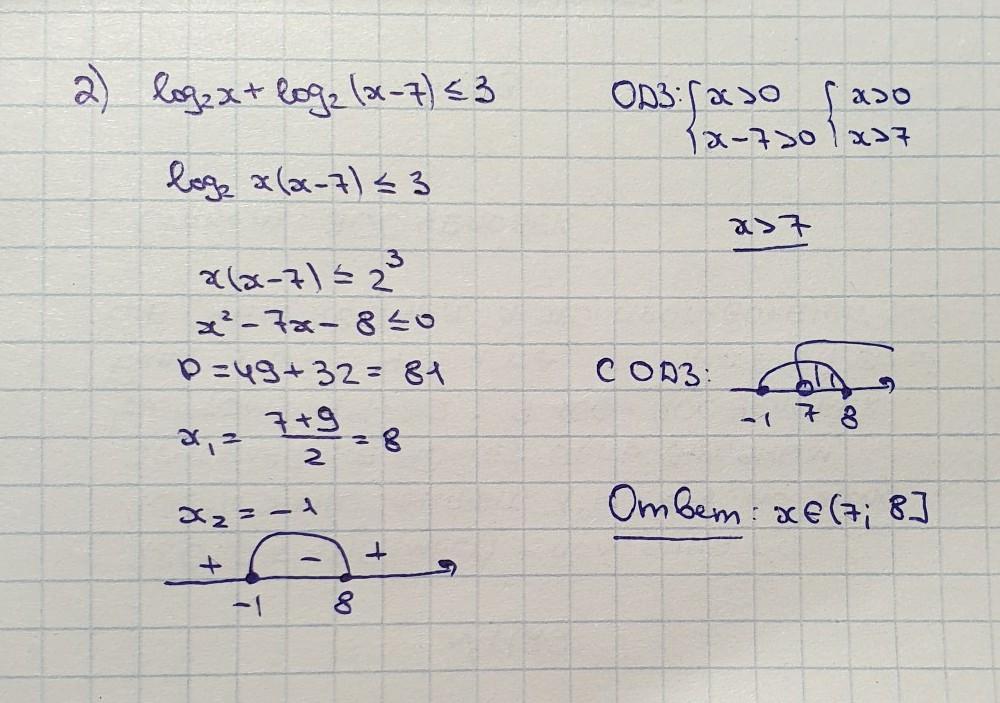 2) log₂x + log₂(x-7) ≤ 3
log₂ x(x-7) ≤ 3
x(x-7) ≤ 2³
x² - 7x - 8 ≤ 0
D = 49 + 32 = 81
x₁ = (7+9)/2 = 8
x₂ = -1
+ - +
-1 8
ОДЗ: { x>0 { x>0
{ x-7>0 { x>7
x>7
С ОДЗ:
-1 7 8
Ответ: x∈(7; 8]